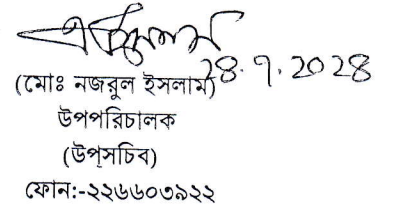 ২৪.৭.২০২৪
(মোঃ নজরুল ইসলাম)
উপপরিচালক
(উপসচিব)
ফোন:-২২৬৬০৩৯২২